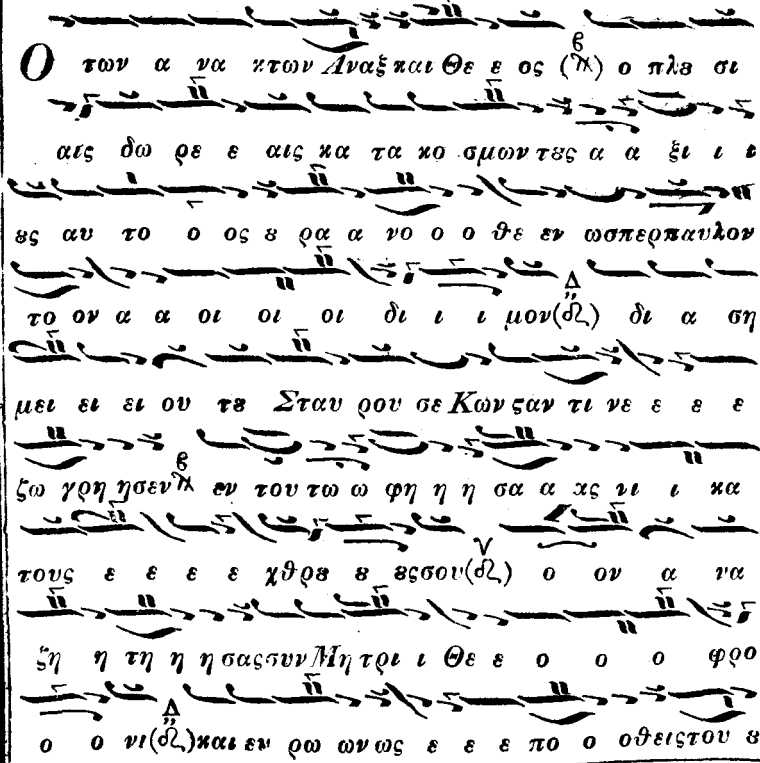 Ο των α να κτων Αναξ και Θε ε ος ( ) ο πλȣ σι
αις δω ρε ε αις κα τα κο σμων τȣς α α ξι ι ι
ȣς αυ το ο ος ȣ ρα α νο ο ο θε εν ωσπερ παυλον
το ον α α οι οι οι δι ι ι μον ( ) δι α ση
μει ει ει ου τȣ Σταυ ρου σε Κων ϛαν τι νε ε ε ε
ζω γρη ησεν εν του τω ω φη η η σα α ας νι ι κα
τους ε ε ε ε χθρȣ ȣ ȣς σου ( ) ο ον α να
ζη η τη η η σας συν Μη τρι ι Θε ε ο ο ο φρο
ο ο νι ( ) και εν ρω ων ως ε ε ε πο ο οθεις του ȣ